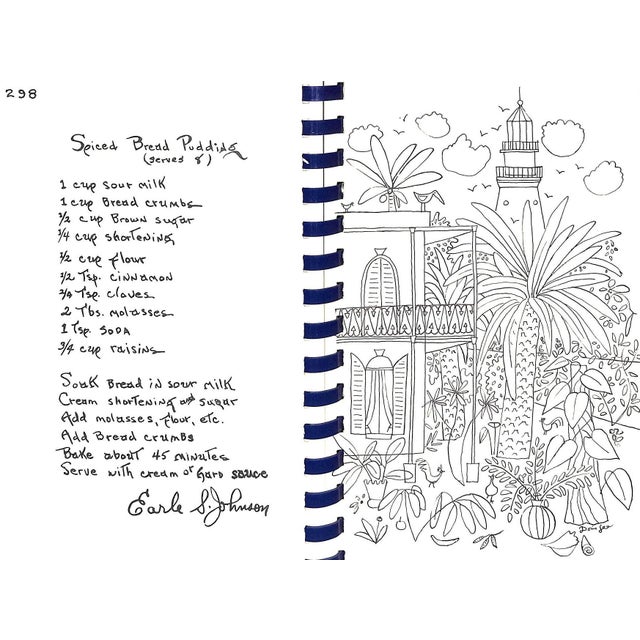 298
Spiced Bread Pudding
(serves 8)
1 cup sour milk
1 cup Bread crumbs
1/2 cup Brown sugar
1/4 cup shortening
1/2 cup flour
1/2 Tsp. cinnamon
3/4 Tsp. claves
2 Tbs. molasses
1 Tsp. SODA
3/4 cup raisins
Soak Bread in sour milk
Cream shortening and sugar
Add molasses, flour, etc.
Add Bread crumbs
Bake about 45 minutes
Serve with cream or hard sauce
Earle S. Johnson